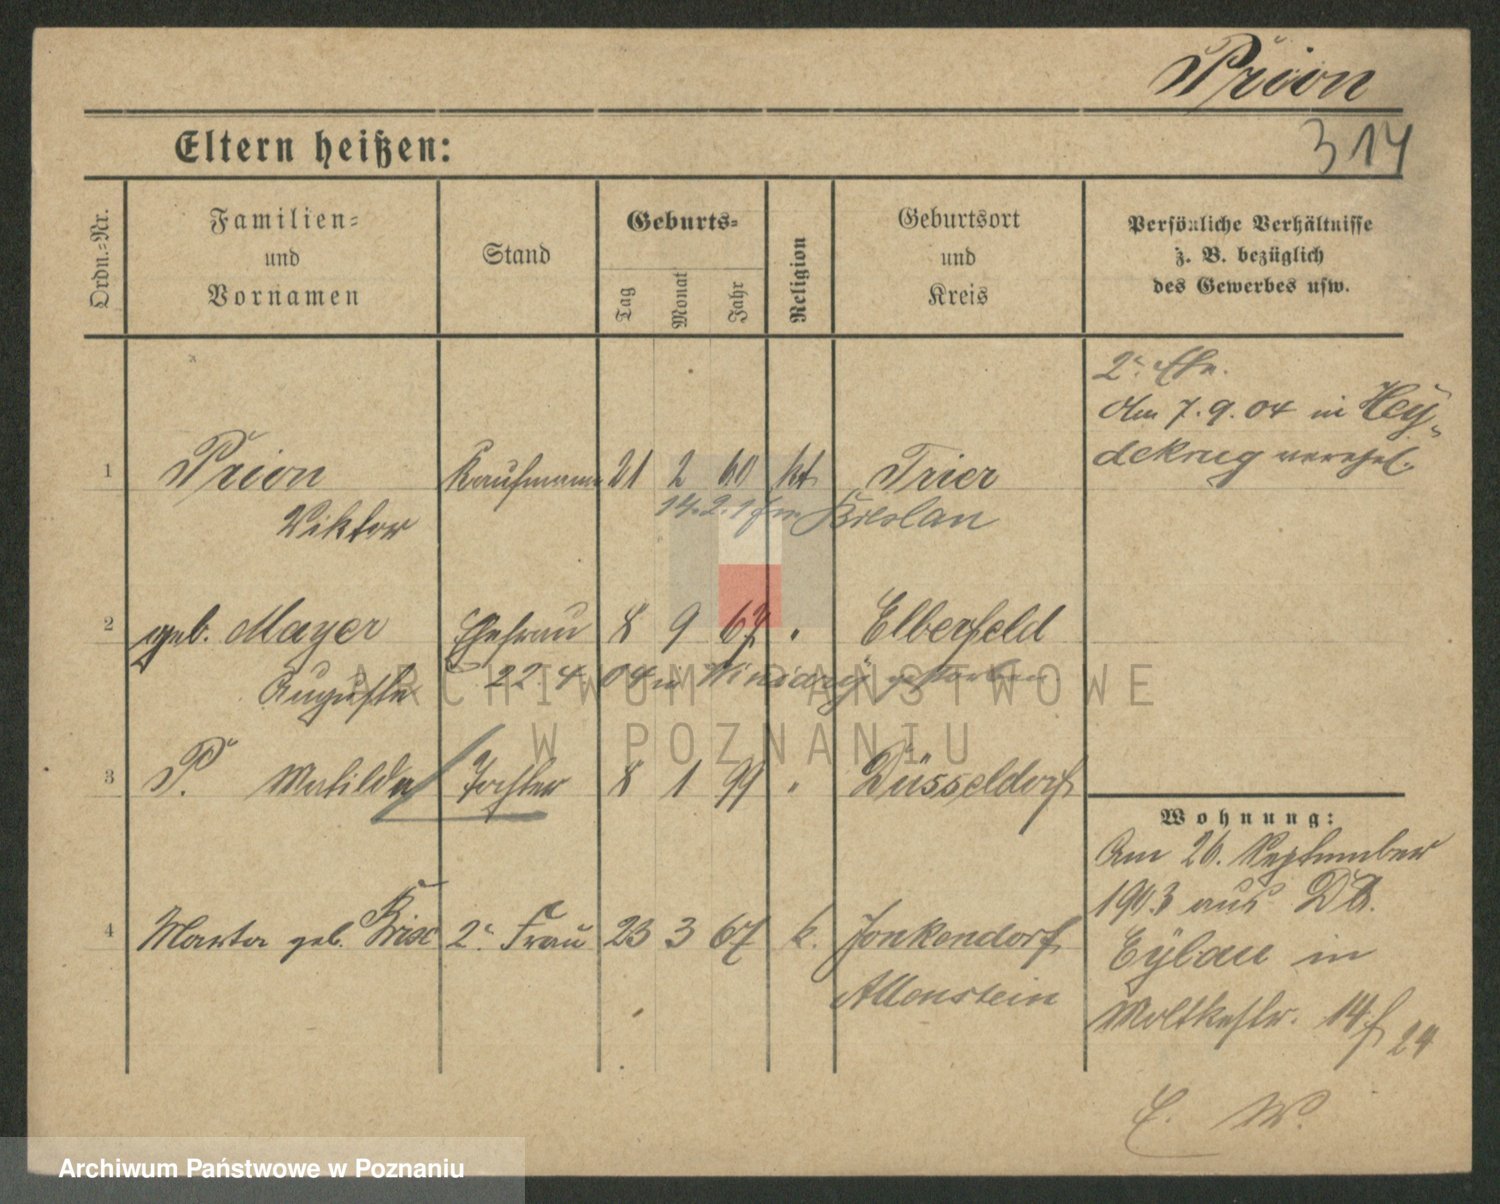 Prion
314
Eltern heißen:
Ordn.=Nr.
Familien=
und
Vornamen
Stand
Geburts=
Tag
Monat
Jahr
Religion
Geburtsort
und
Kreis
Persönliche Verhältnisse
z. B. bezüglich
des Gewerbes usw.
2te Ehe.
Am 7.9.04 in Hey-
dekrug verehel.
1 Prion Kaufmann 21 2 60 kt. Trier
Viktor
14.2.1 Breslau
2 geb. Mayer Ehefrau 8 9 67 " Elberfeld
Auguste
22 4 04 in gestorben
3 P. Matilde Tochter 8 1 99 " Düsseldorf
4 Marta geb. 2te Frau 23 3 67 k. Jonkendorf
Allenstein
Wohnung:
Am 26. September
1903 aus Dt.
Eylau in
Moltkestr. 14
24
E. W.
ARCHIWUM PAŃSTWOWE
W POZNANIU
Archiwum Państwowe w Poznaniu